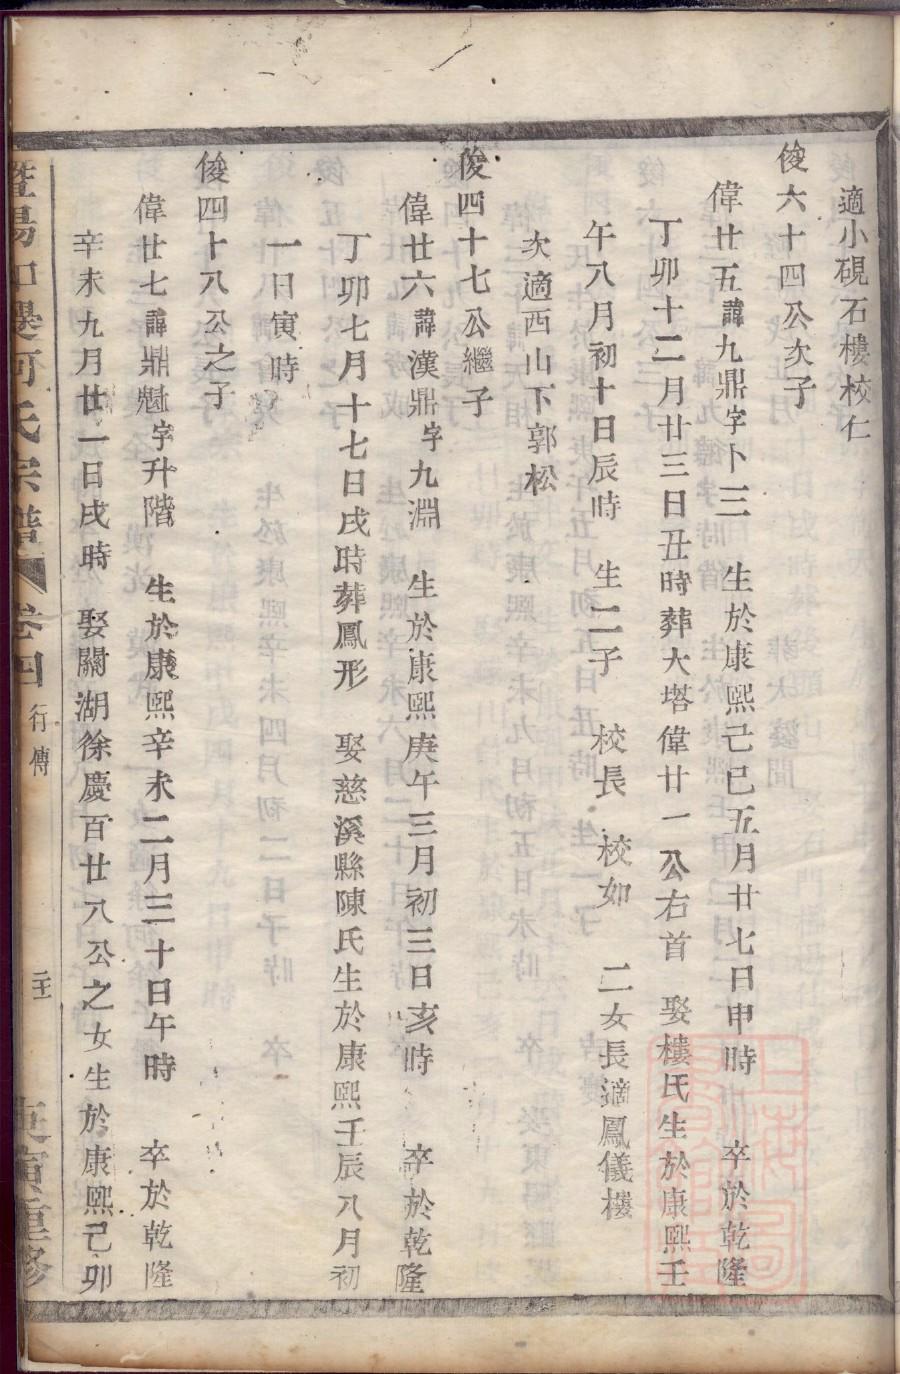 適小硯石樓校仁
俊六十四公次子
偉廿五諱九鼎字卜三　生於康熙己巳五月廿七日申時　卒於乾隆
丁卯十二月廿三日丑時葬大塔偉廿一公右首　娶樓氏生於康熙壬
午八月初十日辰時　生二子　校長　校如　二女長適鳳儀樓
次適西山下郭松
俊四十七公繼子
偉廿六諱漢鼎字九淵　生於康熙庚午三月初三日亥時　卒於乾隆
丁卯七月十七日戌時葬鳳形　娶慈溪縣陳氏生於康熙壬辰八月初
一日寅時
俊四十八公之子
偉廿七諱鼎魁字升階　生於康熙辛未二月三十日午時　卒於乾隆
辛未九月廿一日戌時　娶關湖徐慶百廿八公之女生於康熙己卯
暨陽　何氏宗譜　卷四　行傳　重修